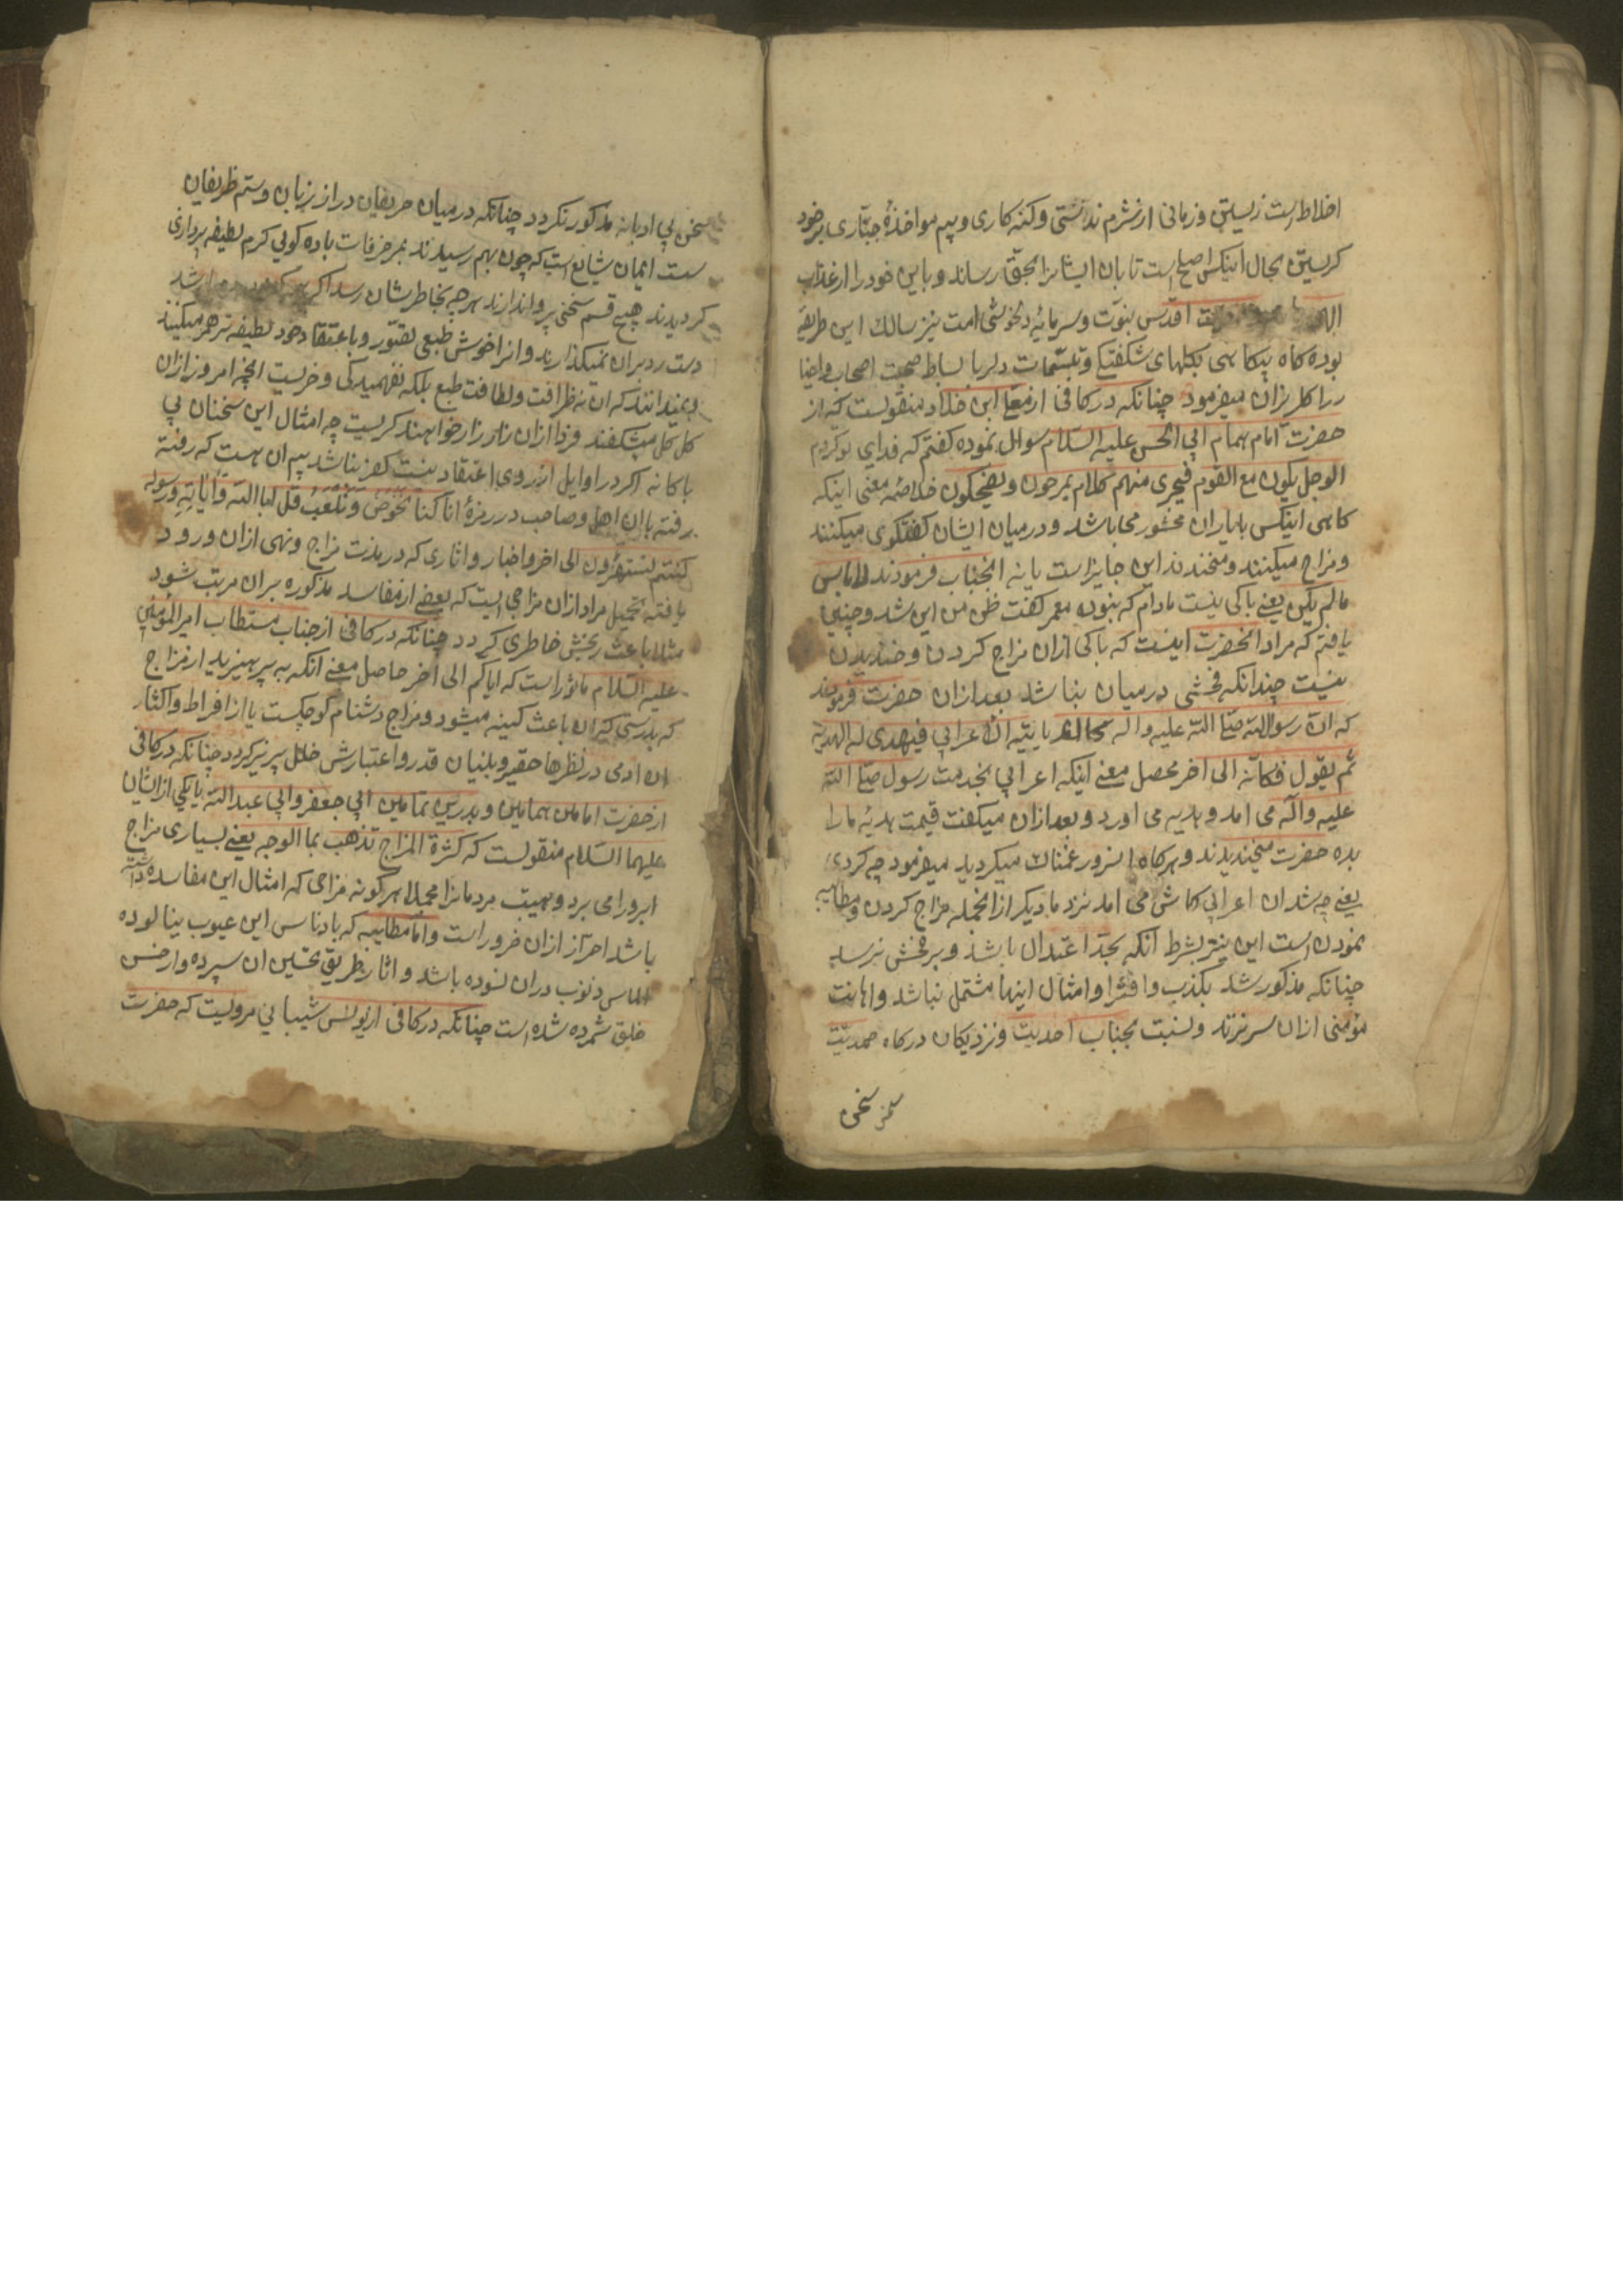 اختلاط است زیستن و زمانی از شرم ندانستی و کنه کاری و بیم مواخذهٔ جبّاری بر خود
کریستن بحال اینکس اصلح است تا بان ایشانرا بحق رساند و باین خود را از عذاب
اقدس نبوّت و سرمایهٔ دلخوشی امت نیز سالک این طریقه
بوده کاه بیکاهی بکلهای شکفتکی و تبسّمات دلربا بساط صحبت اصحاب و احبا
را کلریزان میفرمود چنانکه در کافی از معمّر ابن خلاد منقولست که از
حضرت امام همام ابی الحسن علیه السّلام سوال نموده کفتم که فدای تو کردم
الرجل یکون مع القوم فیجری منهم کلام یمزحون و یضحکون خلاصهٔ معنی اینکه
کاهی اینکس با یاران محشور می باشد و در میان ایشان کفتکوی میکنند
و مزاح میکنند و میخندند این جایز است یا نه انجناب فرمودند لا باس
ما لم یکن یعنی باکی نیست مادام که نبوده معمر کفت ظن من این شد و چنین
یافتم که مراد انحضرت اینست که باکی ازان مزاح کردن و خندیدن
نیست چندانکه فحشی درمیان نباشد بعد ازان حضرت فرمودند
که انّ رسول الله صلّی الله علیه واله کان یاتیه الاعرابی فیهدی له الهدیة
ثم یقول فکانّه الی اخر محصل معنی اینکه اعرابی بخدمت رسول صلّی الله
علیه واله می امد و هدیه می اورد و بعد ازان میکفت قیمت هدیهٔ ما را
بده حضرت میخندیدند و هر کاه انسرور غمناک میکردید میفرمود چه کردی
یعنی چه شد ان اعرابی کاش می امد نزد ما دیکر ازانجمله مزاح کردن و مطایبه
نمودن است این نیز بشرط انکه بحدّ اعتدال باشد و بر فحش نرسد
چنانکه مذکور شد بکذب و افترا و امثال اینها مشتمل نباشد و اهانت
مؤمنی ازان سر نزند و نسبت بجناب احدیت و نزدیکان درکاه صمدیّت
سخن
سخن بی ادبانه مذکور نکردد چنانکه درمیان حریفان دراز زبان و ستم ظریفان
سست ایمان شایع است که چون بهم رسیدند بمزخرفات باده کوئی کرم لطیفه پردازی
کردیدند هیچ قسم سخنی پروا ندارند هر چه بخاطرشان رسد اکر
دست رد بران نمیکذارند و انرا خوش طبعی تصوّر و باعتقاد خود لطیفه تر هم میکنند
و نمیدانند که ان نه ظرافت و لطافت طبع بلکه نفهمیدکی و خریست انچه امروز ازان
کل کل میشکفند فردا ازان زار زار خواهند کریست چه امثال این سخنان بی
باکانه اکر در اوایل از روی اعتقاد نیست کفر نباشد بیم ان هست که رفته
رفته با ان اهل و صاحب در زمرهٔ انّا کنّا نخوض و نلعب قل ابالله و ایاته و رسوله
کنتم تستهزؤن الی اخر و اخبار و اثاری که در مذمت مزاح و نهی ازان ورود
یافته تحمیل مراد ازان مزاحی است که بعضی از مفاسد مذکوره بران مرتب شود
مثلا باعث رنجش خاطری کردد چنانکه در کافی از جناب مستطاب امیر المؤمنین
علیه السّلام ماثور است که ایاکم الی اخر حاصل معنی انکه به پرهیزید از مزاح
که بدرستیکه ان باعث کینه میشود و مزاح دشنام کوچکست یا از افراط و اکثار
ان ادمی در نظرها حقیر و بنیان قدر و اعتبارش خلل پزیر کردد چنانکه در کافی
از حضرت امامین همامین و بدرین تمامین ابی جعفر و ابی عبدالله یا یکی ازایشان
علیهما السّلام منقولست که کثرة المزاح تذهب بماء الوجه یعنی بسیاری مزاح
ابرو را می برد و هیبت مردمانرا مجملا هر کونه مزاحی که امثال این مفاسد داشته
باشد احتراز ازان ضرور است و امّا مطایبه که بادناس این عیوب نیالوده
الماس ذنوب دران نسوده باشد و اثار بطریق تحسین ان سپرده و از حسن
خلق شمرده شده است چنانکه در کافی از یونس شیبانی مرویست که حضرت